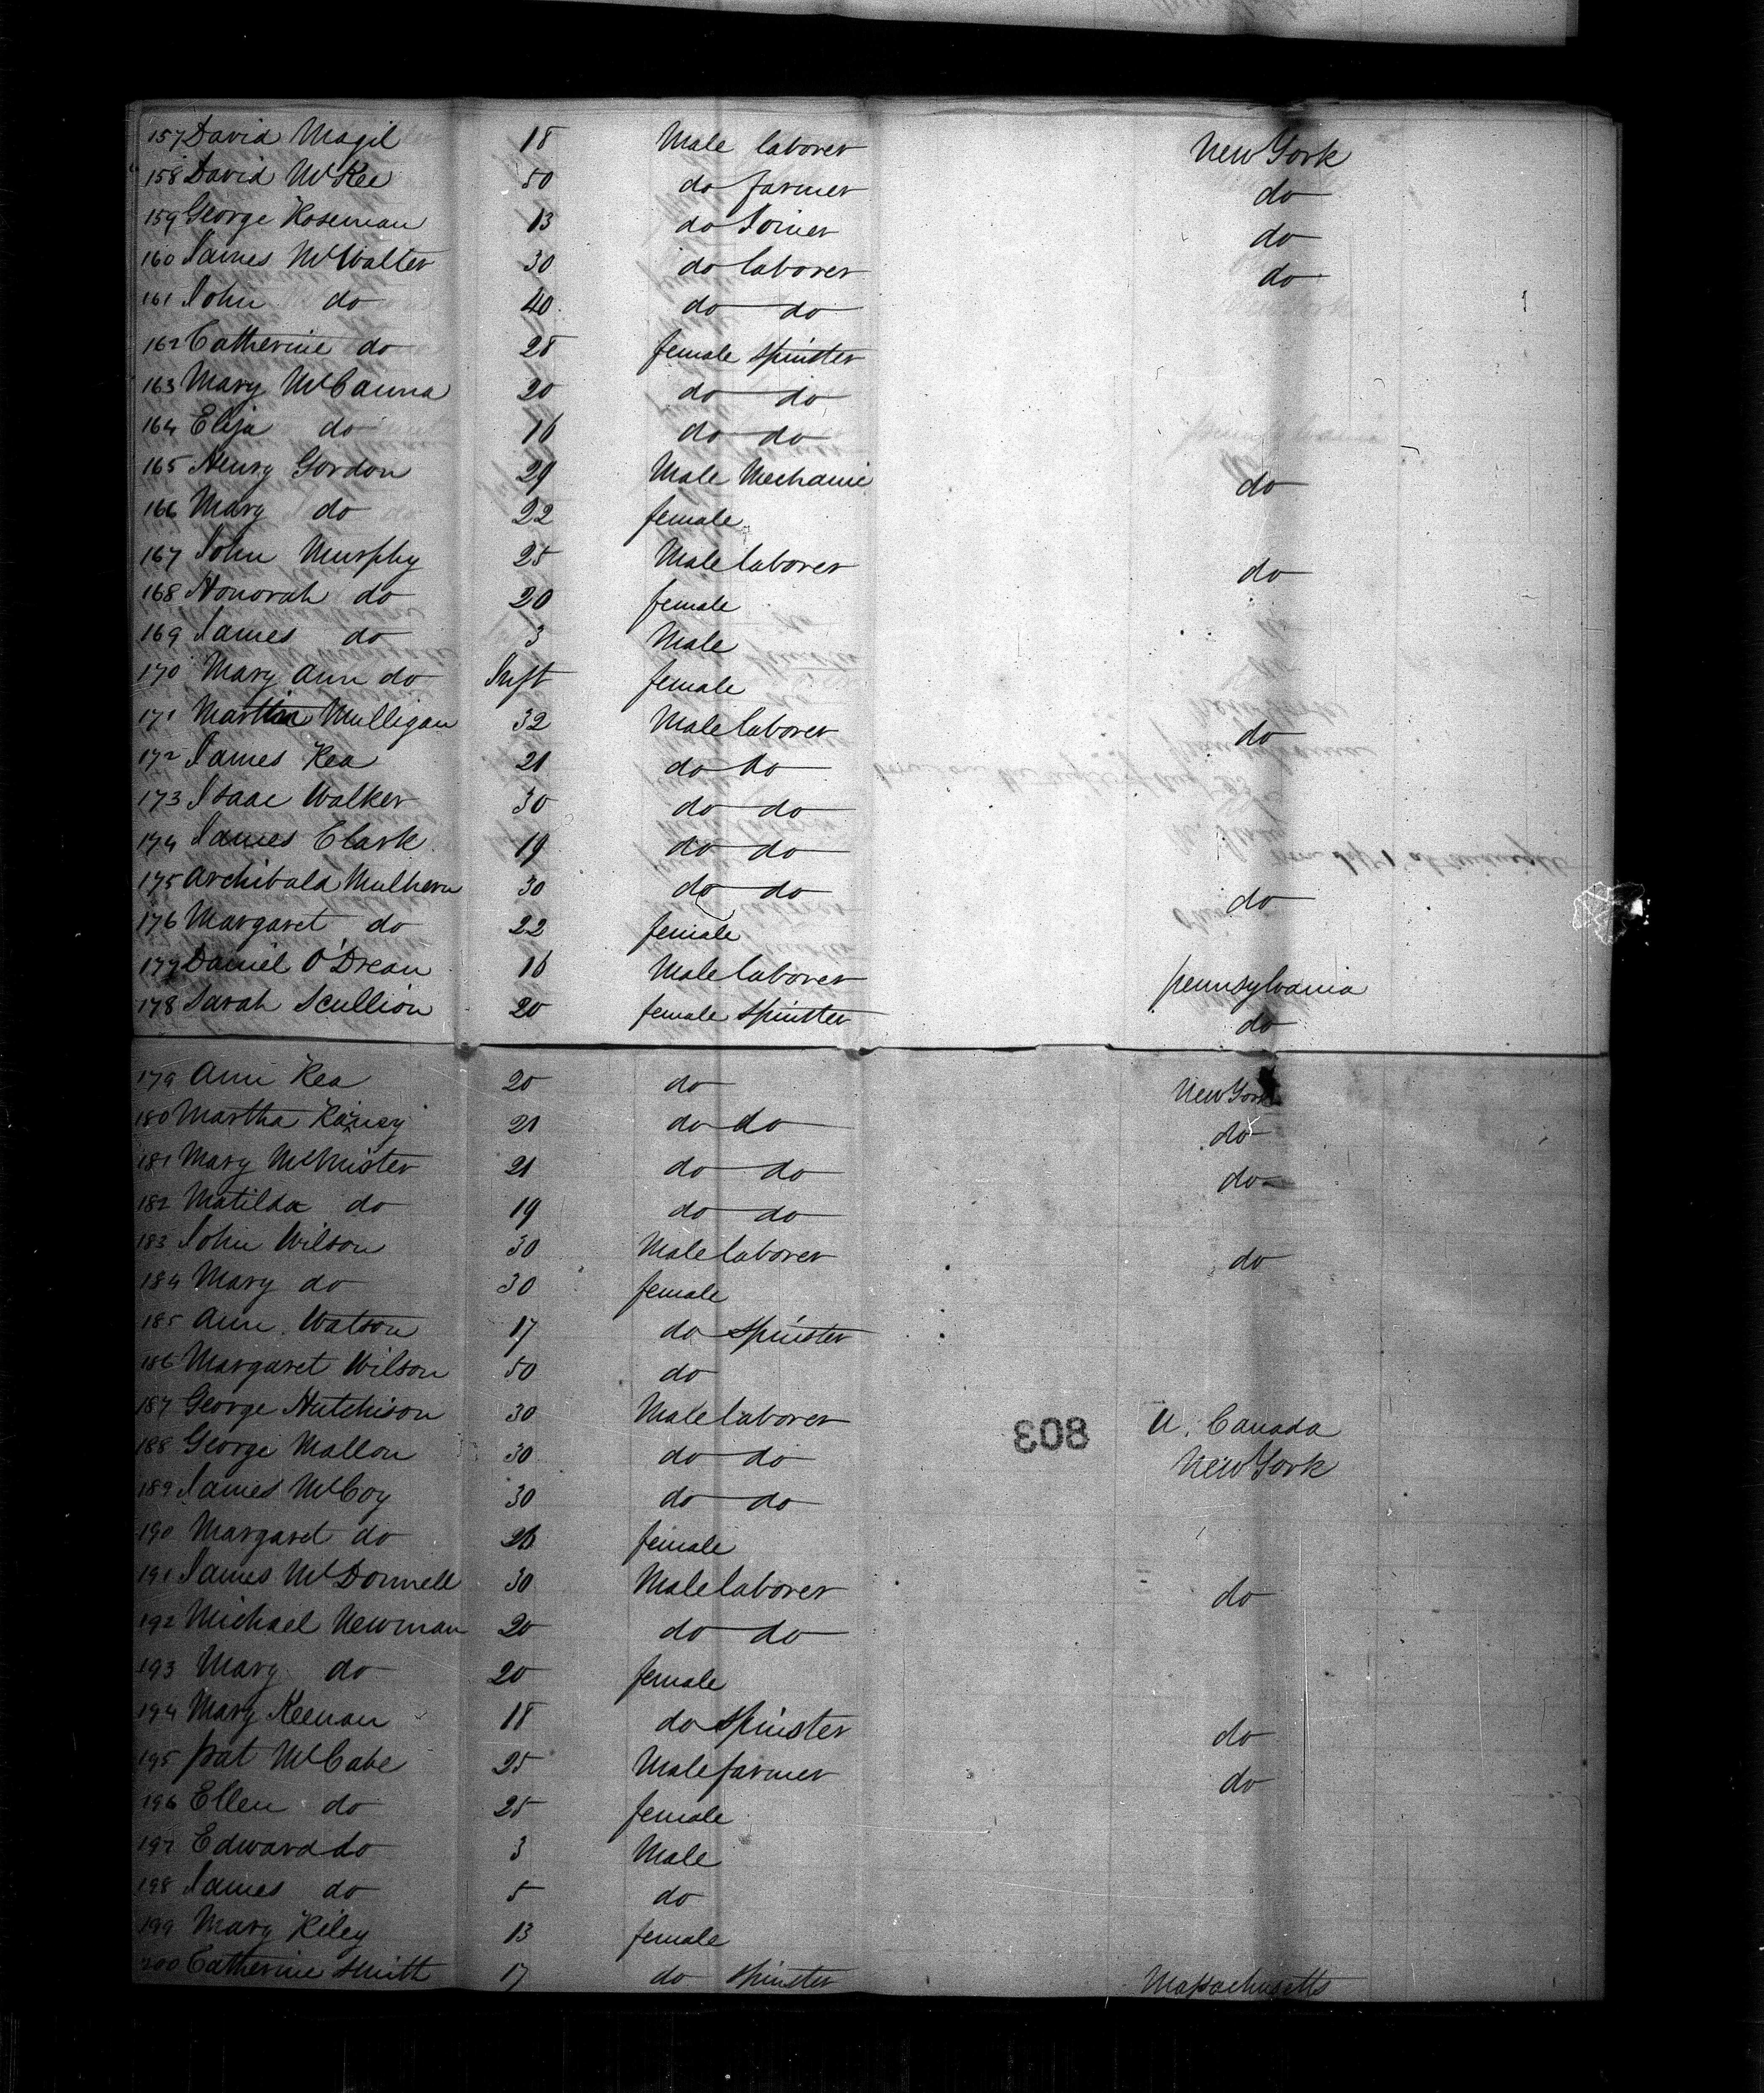 157 David Magil 18 Male laborer New York
158 David McKee 50 do farmer do
159 George Roseman 13 do Joiner do
160 James McWalter 30 do laborer do
161 John do 40 do do
162 Catherine do 28 female spinster
163 Mary McCanna 20 do do
164 Eliza do 16 do do
165 Henry Gordon 29 Male Mechanic do
166 Mary do 22 female
167 John Murphy 25 Male laborer do
168 Honorah do 20 female
169 James do 3 Male
170 Mary Ann do Inft female
171 Martin Mulligan 32 Male laborer do
172 James Rea 21 do do
173 Isaac Walker 30 do do
174 James Clark 19 do do
175 Archibald Mulhern 30 do do do
176 Margaret do 22 female
177 Daniel O'Drean 16 Male laborer pennsylvania
178 Sarah Scullion 20 female spinster do
179 Ann Rea 20 do New York
180 Martha 21 do do do
181 Mary 21 do do do
182 Matilda do 19 do do
183 John Wilson 30 Male laborer do
184 Mary do 30 female
185 Ann Watson 17 do spinster
186 Margaret Wilson 50 do
187 George Hutchison 30 Male laborer U. Canada
803
188 George Mallon 30 do do New York
189 James McCoy 30 do do
190 Margaret do 26 female
191 James McDonnell 30 Male laborer do
192 Michael Newman 20 do do
193 Mary do 20 female
194 Mary Keenan 18 do spinster do
195 pat McCabe 25 Male farmer do
196 Ellen do 25 female
197 Edward do 3 Male
198 James do 5 do
199 Mary Kiley 13 female
200 Catherine Smith 17 do spinster Massachusetts